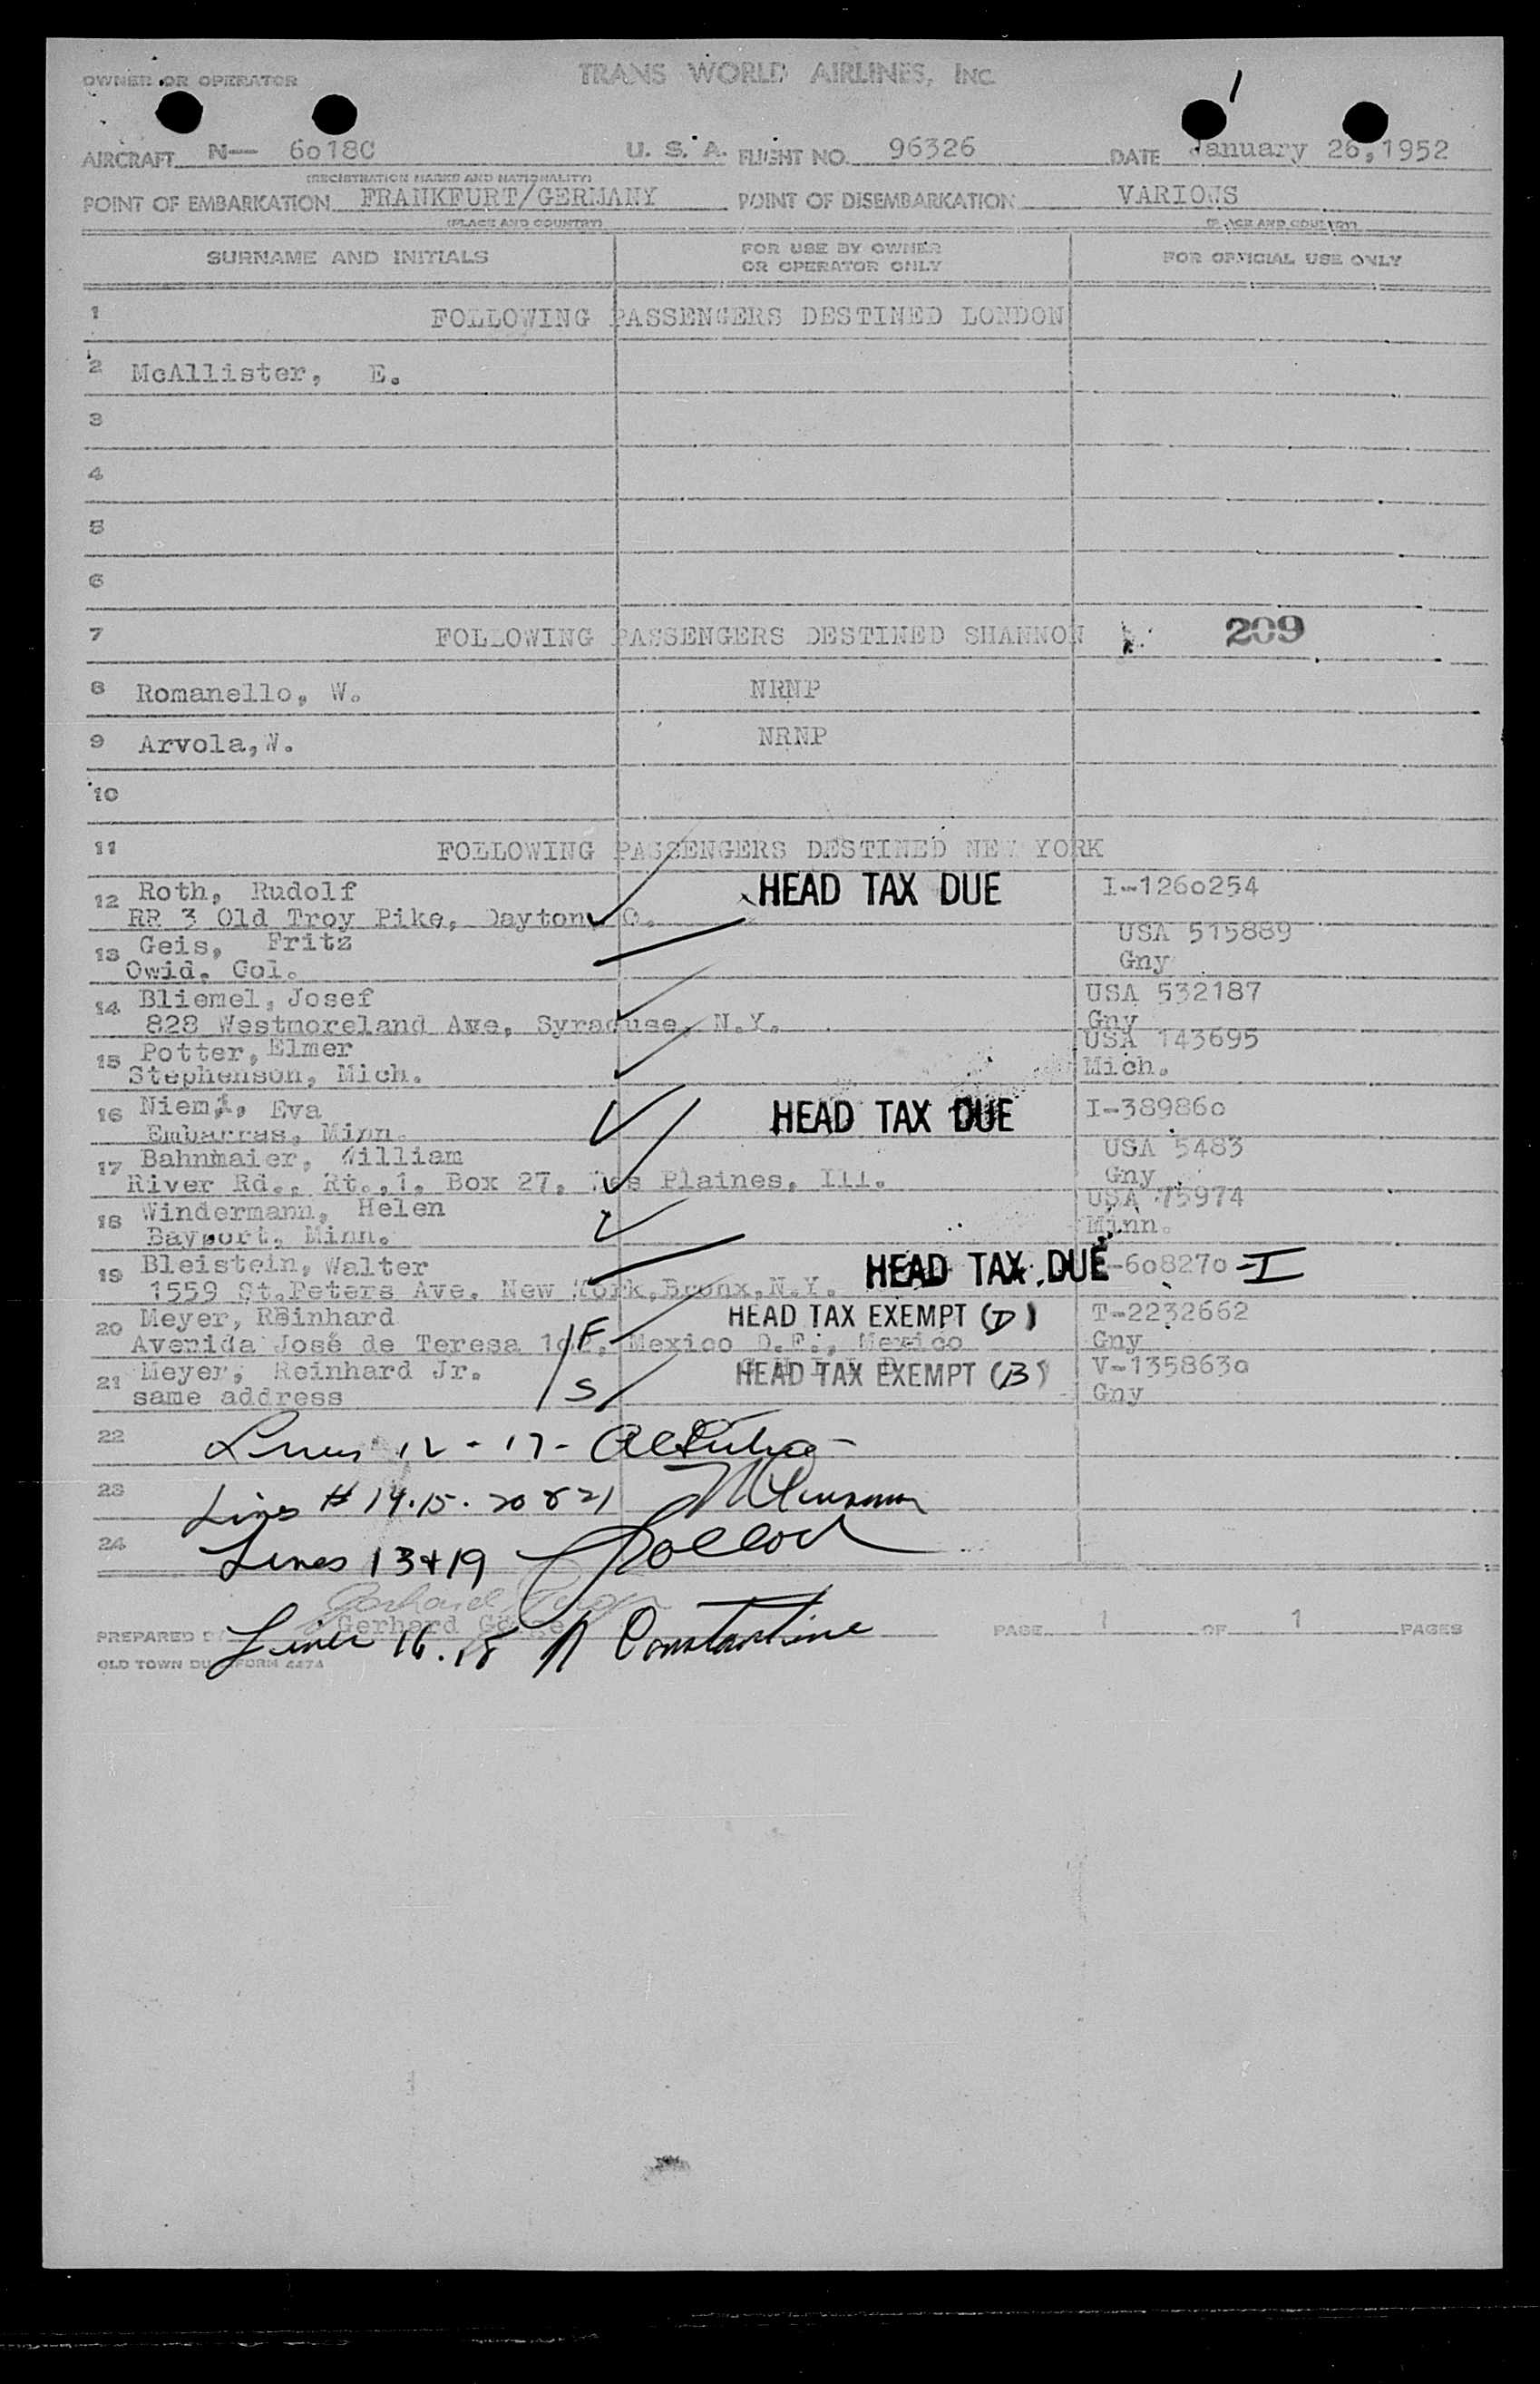 OWNER OR OPERATOR TRANS WORLD AIRLINES, INC.
AIRCRAFT N— 6o18C U. S. A. FLIGHT NO. 96326 DATE January 26, 1952
(REGISTRATION MARKS AND NATIONALITY)
POINT OF EMBARKATION FRANKFURT/GERMANY POINT OF DISEMBARKATION VARIOUS
(PLACE AND COUNTRY) (PLACE AND COUNTRY)
SURNAME AND INITIALS FOR USE BY OWNER OR OPERATOR ONLY FOR OFFICIAL USE ONLY
1 FOLLOWING PASSENGERS DESTINED LONDON
2 McAllister, E.
3
4
5
6
7 FOLLOWING PASSENGERS DESTINED SHANNON 209
8 Romanello, W. NRNP
9 Arvola, W. NRNP
10
11 FOLLOWING PASSENGERS DESTINED NEW YORK
12 Roth, Rudolf HEAD TAX DUE I-126o254
RR 3 Old Troy Pike, Dayton O.
13 Geis, Fritz USA 515889
Owid. Col. Gny
14 Bliemel, Josef USA 532187
828 Westmoreland Ave, Syracuse, N.Y. Gny
15 Potter, Elmer USA 143695
Stephenson, Mich. Mich.
16 Niemi, Eva HEAD TAX DUE I-38986o
Embarras, Minn.
17 Bahnmaier, William USA 5483
River Rd., Rt.,1, Box 27, Des Plaines, Ill. Gny
18 Windermann, Helen USA 75974
Bayport, Minn. Minn.
19 Bleistein, Walter HEAD TAX DUE -6o827o-I
1559 St.Peters Ave. New York,Bronx,N.Y.
20 Meyer, Reinhard HEAD TAX EXEMPT (D) T-2232662
Avenida José de Teresa F Mexico D.F., Mexico Gny
21 Meyer, Reinhard Jr. HEAD TAX EXEMPT (B) V-135863o
same address S CHILD Gny
22 Lines 12 - 17 -
23 Lines # 14. 15. 20 & 21
24 Lines 13 + 19 Pollock
PREPARED BY Gerhard PAGE 1 OF 1 PAGES
Lines 16. 18 N Constantine
OLD TOWN FORM 4474